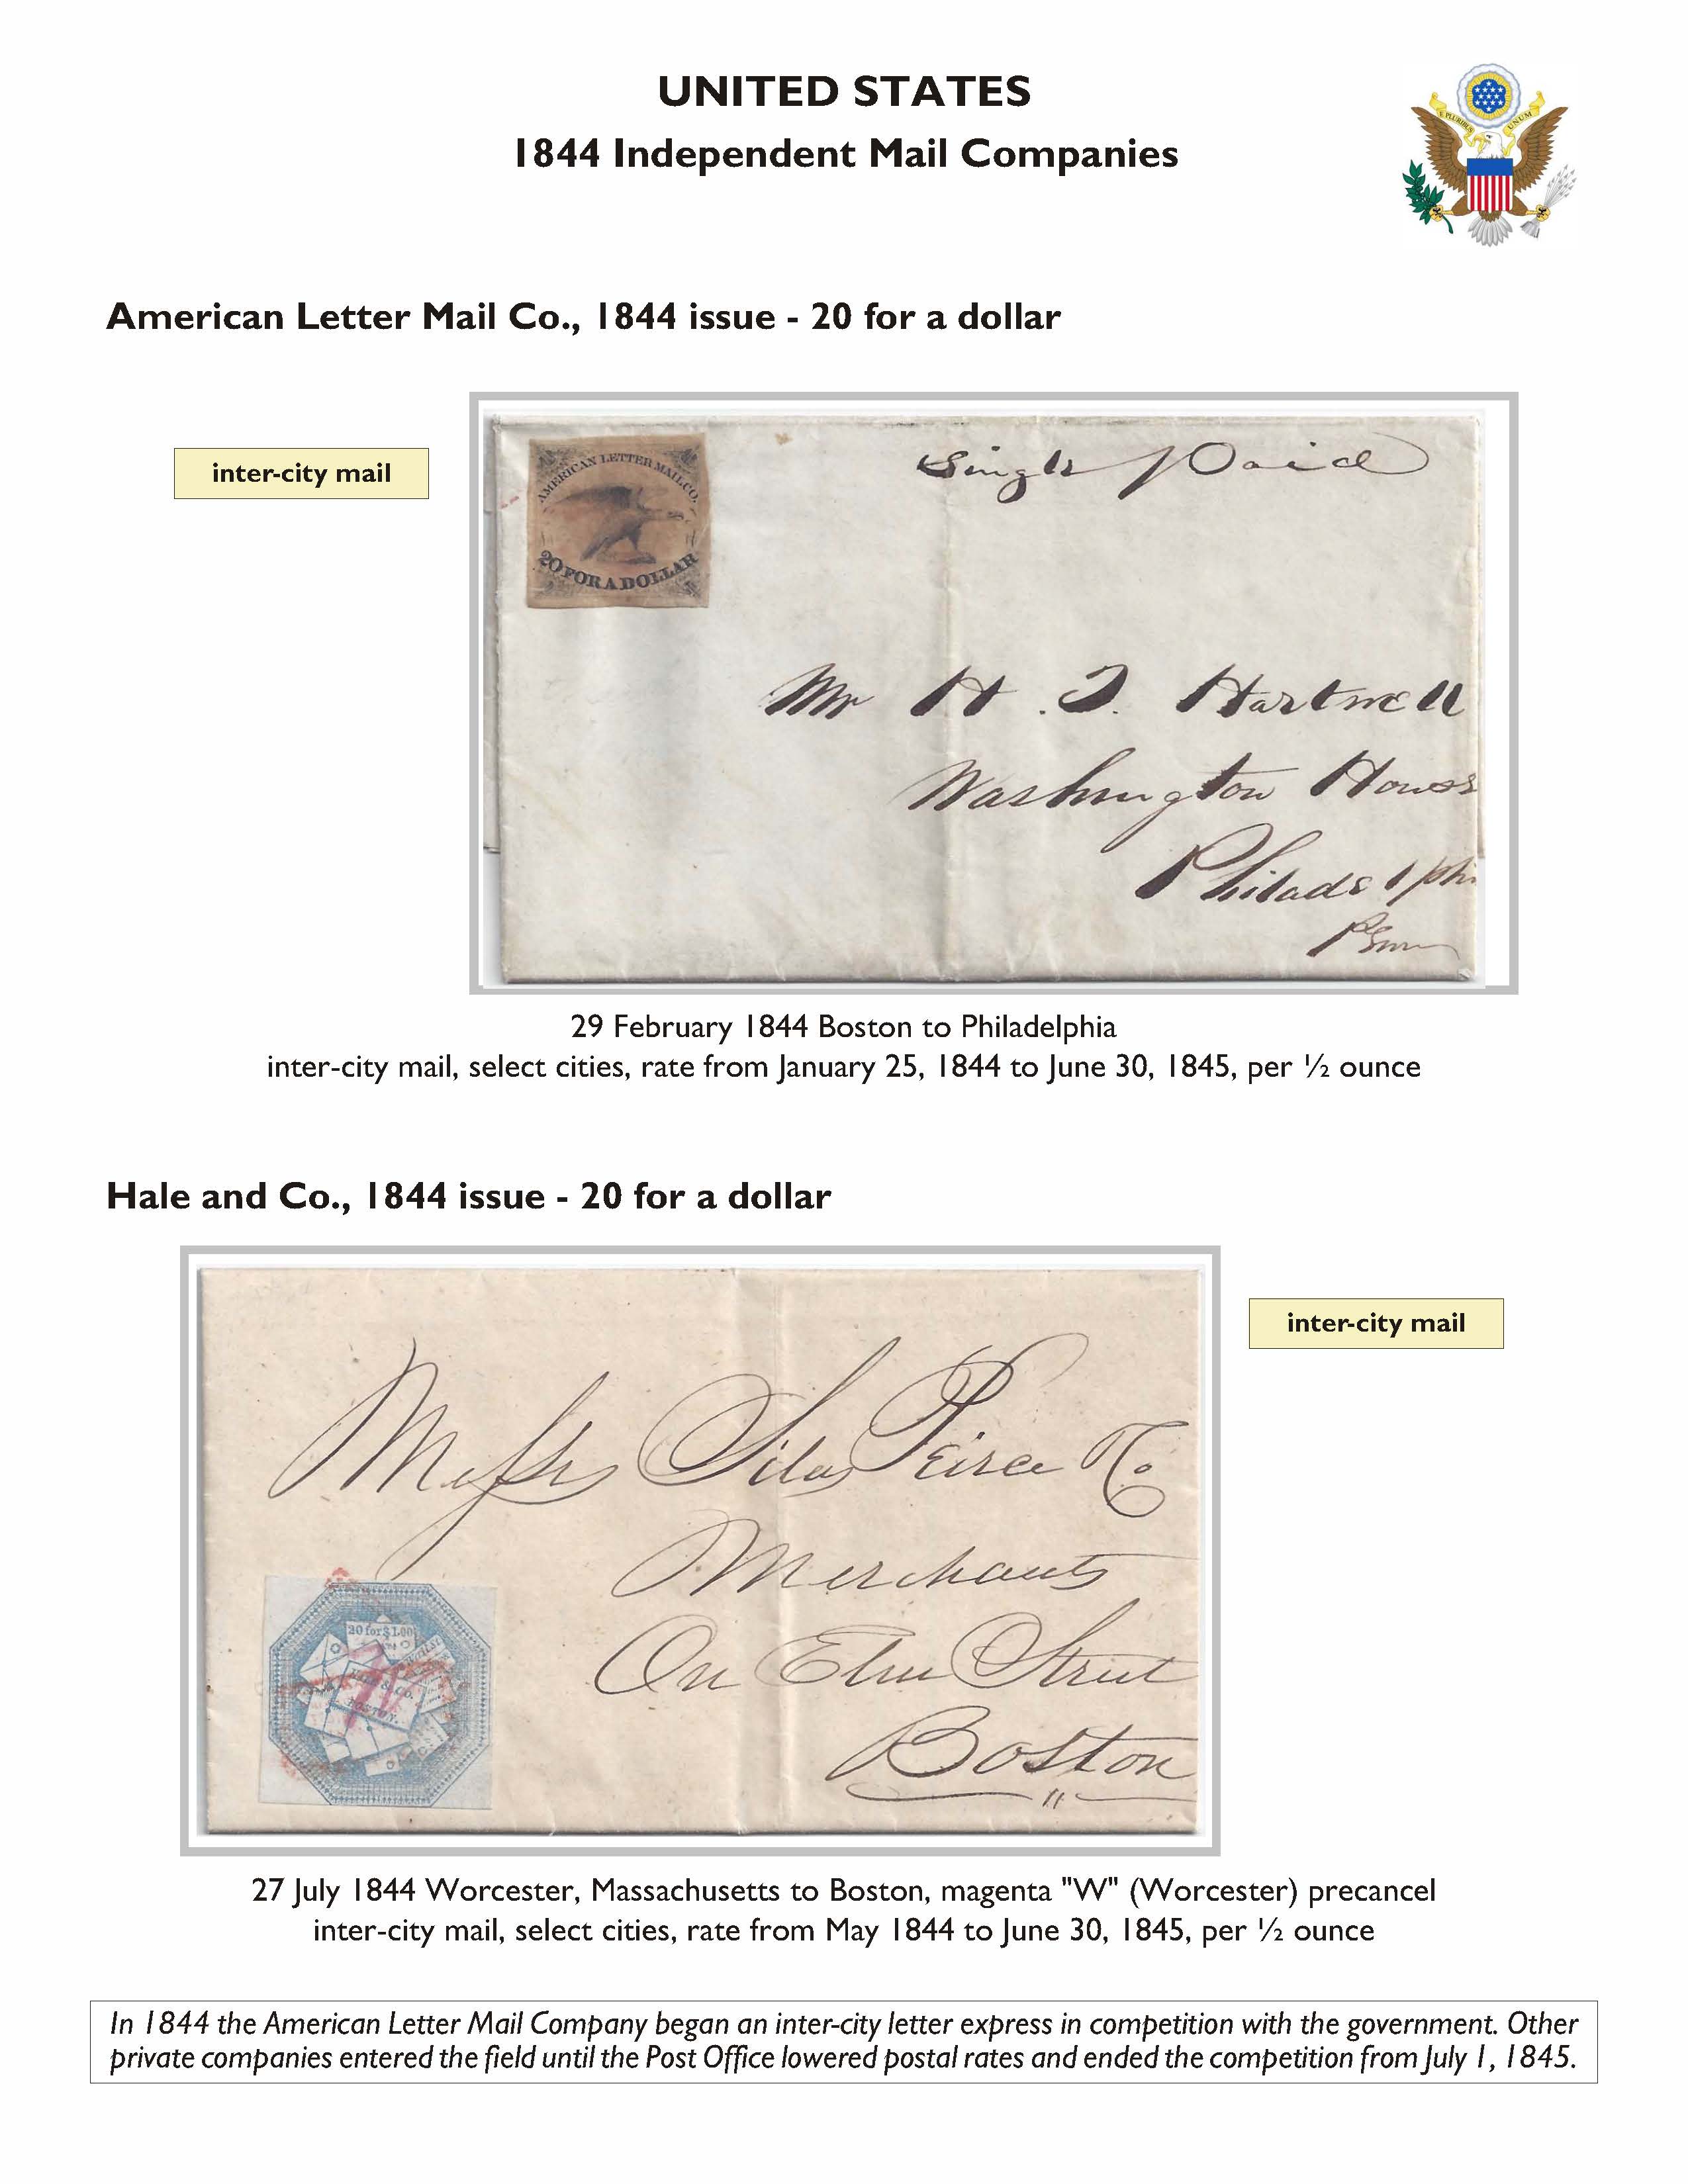 UNITED STATES
1844 Independent Mail Companies
E PLURIBUS UNUM
American Letter Mail Co., 1844 issue - 20 for a dollar
inter-city mail
AMERICAN LETTER MAIL CO.
20 FOR A DOLLAR
Single Paid
Mr H. J. Hartwell
Washington House
Philadelphi
Penn
29 February 1844 Boston to Philadelphia
inter-city mail, select cities, rate from January 25, 1844 to June 30, 1845, per ½ ounce
Hale and Co., 1844 issue - 20 for a dollar
inter-city mail
Messrs Silas Peirce & Co
Merchants
On Elm Street
Boston
20 for $1.00
HALE & CO.
BOSTON.
27 July 1844 Worcester, Massachusetts to Boston, magenta "W" (Worcester) precancel
inter-city mail, select cities, rate from May 1844 to June 30, 1845, per ½ ounce
In 1844 the American Letter Mail Company began an inter-city letter express in competition with the government. Other
private companies entered the field until the Post Office lowered postal rates and ended the competition from July 1, 1845.